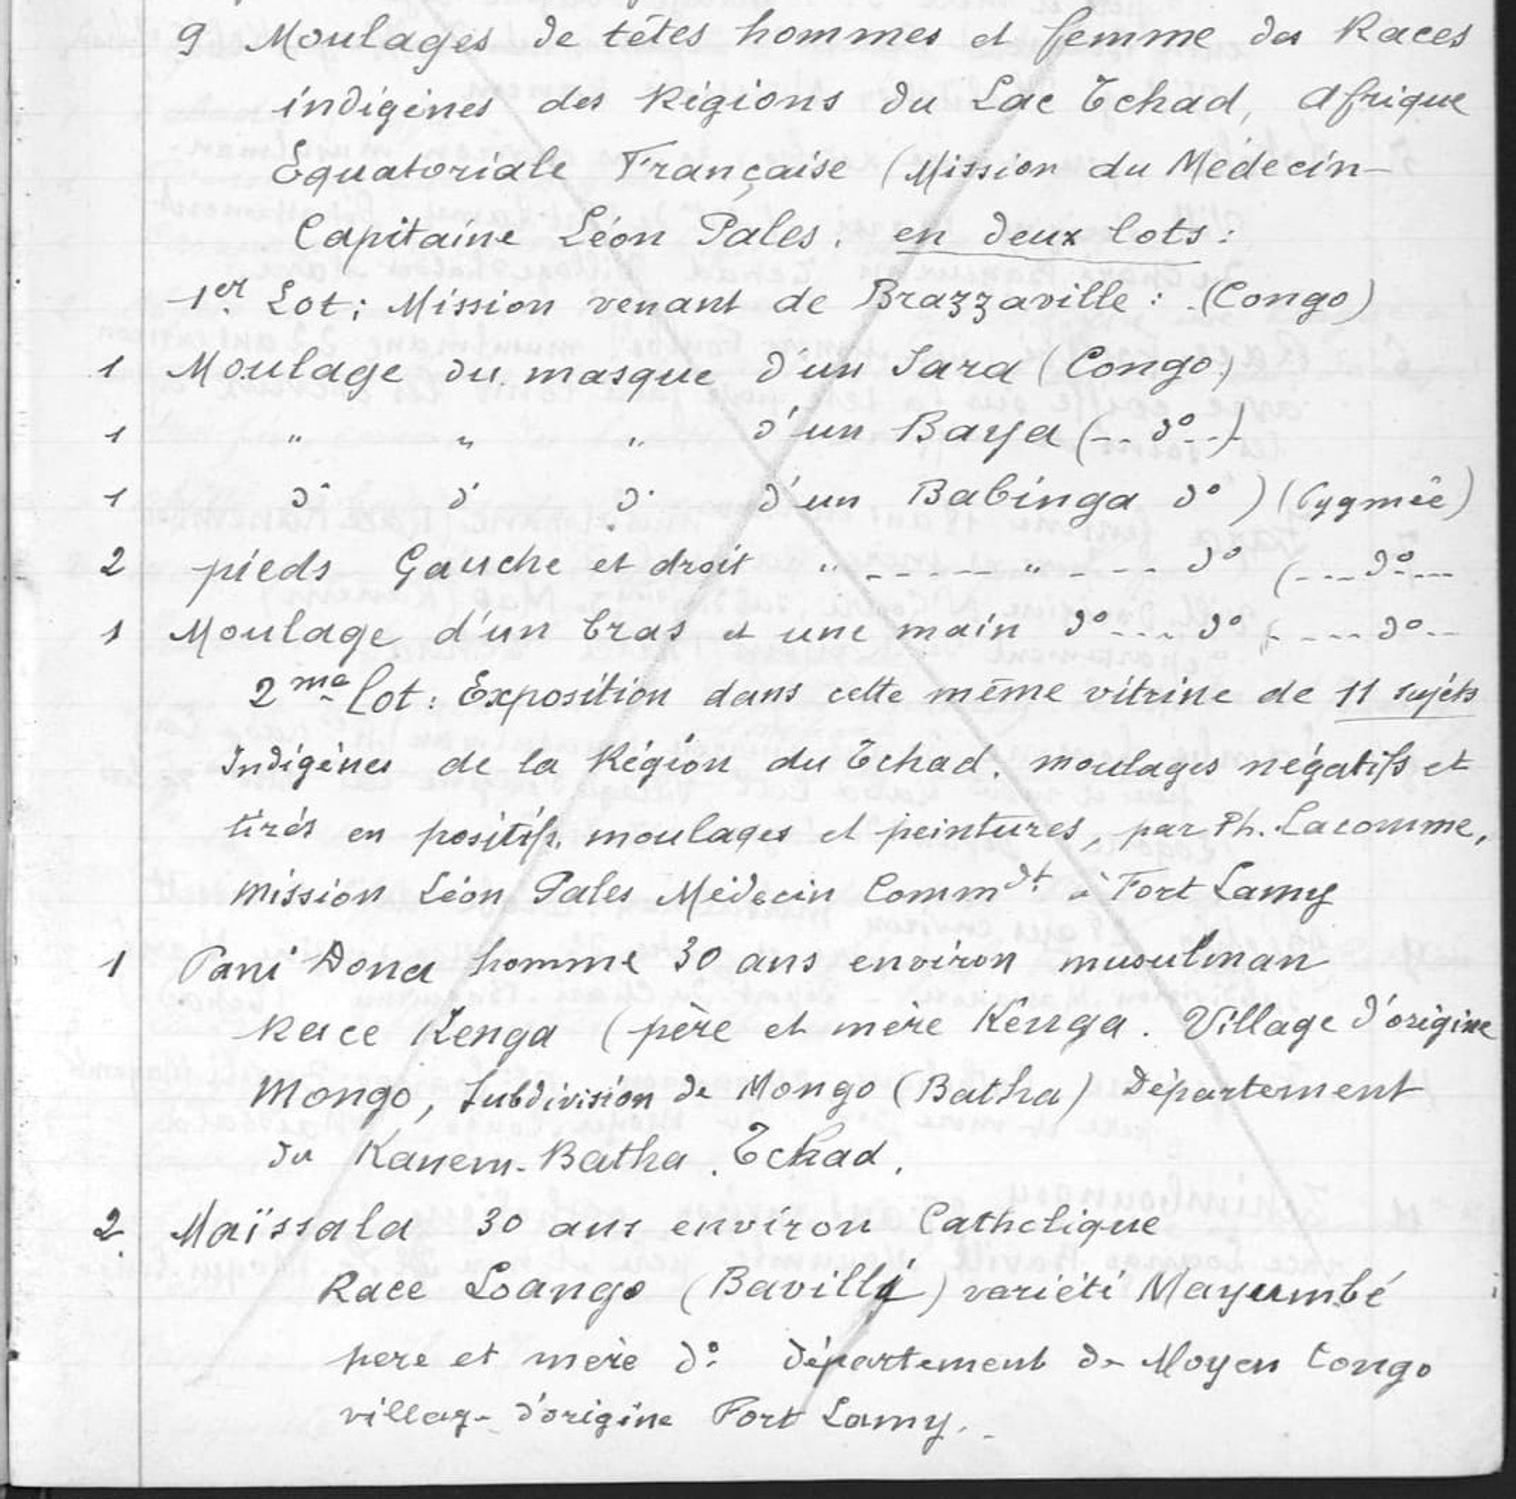 9 Moulages de têtes hommes et femme des Races
indigènes des Régions du Lac Tchad, Afrique
Equatoriale Française (Mission du Médecin-
Capitaine Léon Pales. en deux lots :
1er Lot : Mission venant de Brazzaville : (Congo)
1 Moulage du masque d'un Sara (Congo)
1 " " " d'un Baya (-- d° --)
1 d° d° d° d'un Babinga d° ) (Pygmée)
2 pieds Gauche et droit " ----- " ---- d° (--- d° ---
1 Moulage d'un bras et une main d° --- d° (---- d° --
2me Lot : Exposition dans cette même vitrine de 11 sujets
Indigènes de la Région du Tchad. moulages négatifs et
tirés en positifs. moulages et peintures, par Ph. Lacomme,
Mission Léon Pales Médecin Commdt à Fort Lamy
1 Pani Dona homme 30 ans environ musulman
Race Kenga (père et mère Kenga. Village d'origine
Mongo, Subdivision de Mongo (Batha) Département
du Kanem-Batha. Tchad.
2. Maïssala 30 ans environ Catholique
Race Loango (Bavilli) variété Mayumbé
pere et mère d° département de Moyen Congo
village d'origine Fort Lamy.